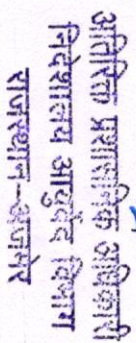 अतिरिक्त प्रशासनिक अधिकारी
निदेशालय आयुर्वेद विभाग
राजस्थान-अजमेर